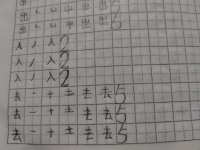 出 乚 屮 屮 出 出 5
出 乚 屮 屮 出 出 5
入 丿 入 2
入 丿 入 2
入 丿 入 2
去 一 十 土 去 去 5
去 一 十 土 去 去 5
去 一 十 土 去 去 5